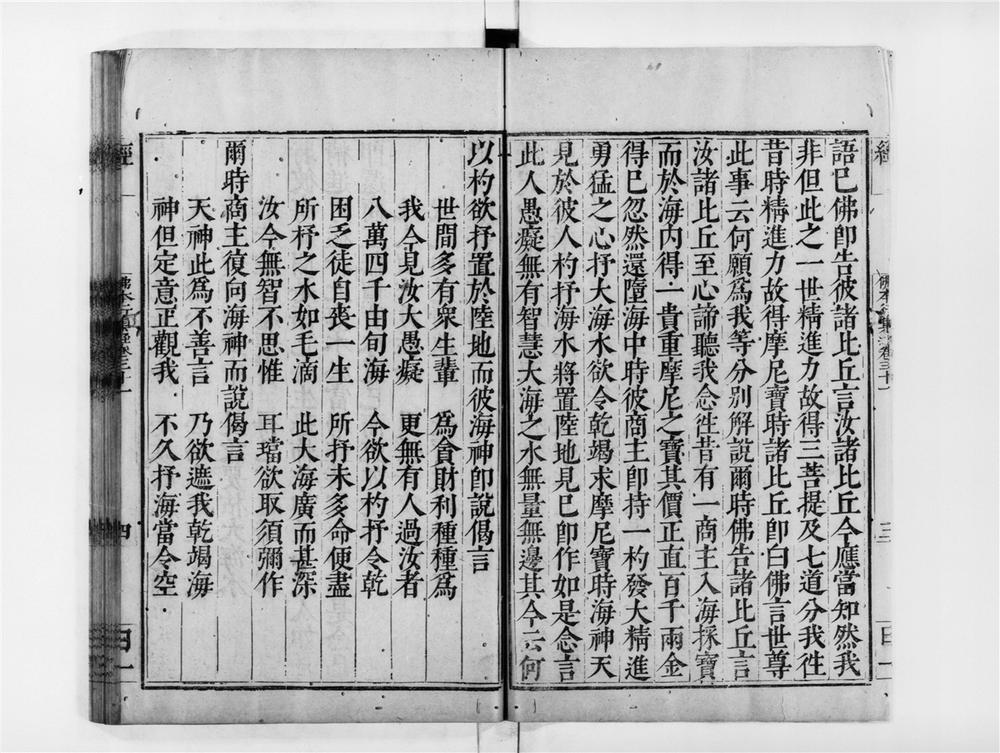 語巳佛卽告彼諸比丘言汝諸比丘今應當知然我
非但此之一世精進力故得三菩提及七道分我徃
昔時精進力故得摩尼寶時諸比丘卽白佛言世尊
此事云何願爲我等分別解說爾時佛告諸比丘言
汝諸比丘至心諦聽我念徃昔有一商主入海採寶
而於海內得一貴重摩尼之寶其價正直百千兩金
得巳忽然還墮海中時彼商主卽持一杓發大精進
勇猛之心抒大海水欲令乾竭求摩尼寶時海神天
見於彼人杓抒海水將置陸地見巳卽作如是念言
此人愚癡無有智慧大海之水無量無邊其今云何
以杓欲抒置於陸地而彼海神卽說偈言
世間多有衆生輩　爲貪財利種種爲
我今見汝大愚癡　更無有人過汝者
八萬四千由旬海　今欲以杓抒令乾
困乏徒自喪一生　所抒未多命便盡
所抒之水如毛滴　此大海廣而甚深
汝今無智不思惟　耳璫欲取須彌作
爾時商主復向海神而說偈言
天神此爲不善言　乃欲遮我乾竭海
神但定意正觀我　不久抒海當令空
經
四
三